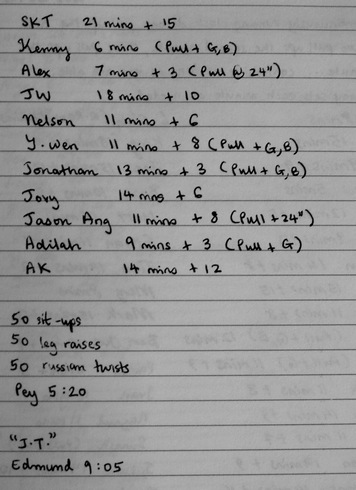 SKT 21 mins + 15
Kenny 6 mins (Pull + G,B)
Alex 7 mins + 3 (Pull @ 24")
JW 18 mins + 10
Nelson 11 mins + 6
Y.wen 11 mins + 8 (Pull + G,B)
Jonathan 13 mins + 3 (Pull + G,B)
Jovy 14 mins + 6
Jason Ang 11 mins + 8 (Pull + 24")
Adilah 9 mins + 3 (Pull + G)
AK 14 mins + 12
50 sit-ups
50 leg raises
50 russian twists
Pey 5:20
"J.T."
Edmund 9:05